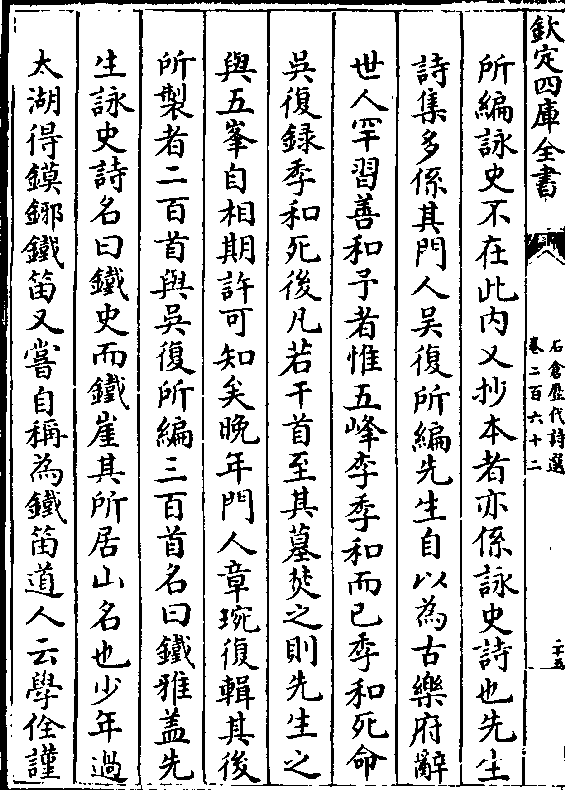 欽定四庫全書
石倉歴代詩選
卷二百六十二
二十五
所編詠史不在此内又抄本者亦係詠史詩也先生
詩集多係其門人吴復所編先生自以為古樂府辭
世人罕習善和予者惟五峰李季和而已季和死命
吳復録季和死後凡若干首至其墓焚之則先生之
與五峯自相期許可知矣晚年門人章琬復輯其後
所製者二百首與吳復所編三百首名曰鐵雅盖先
生詠史詩名曰鐵史而鐵崖其所居山名也少年過
太湖得鏌鎁鐵笛又嘗自稱為鐵笛道人云學佺謹